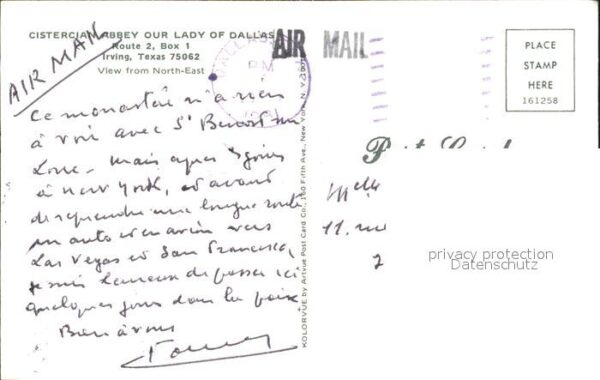 CISTERCIAN ABBEY OUR LADY OF DALLAS
Route 2, Box 1
Irving, Texas 75062
View from North-East
AIR MAIL
AIR MAIL
DALLAS
PM
PLACE
STAMP
HERE
161258
Ce monastère n'a rien
à voir avec St Benoit sur
Loire. Mais après 3 jours
à New York, et avant
de reprendre une longue route
en auto et en avion vers
Las Vegas et San Francisco,
je suis heureux de passer ici
quelques jours dans la paix.
Bien à vous
KOLORVUE by Artvue Post Card Co., 160 Fifth Ave., New York, N. Y.
Post Card
Melle
11, rue
privacy protection
Datenschutz